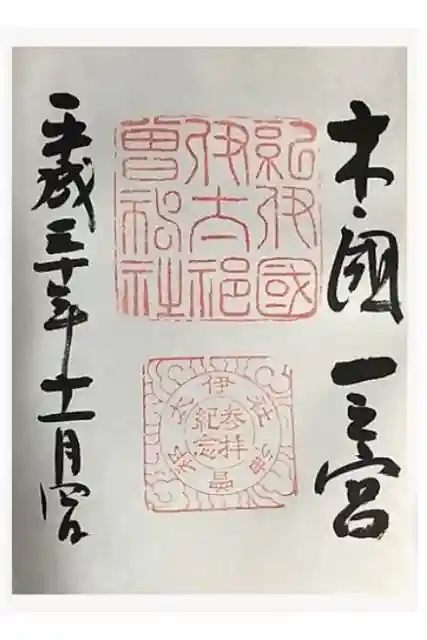 木ノ國 一之宮
紀伊國
伊太祁
曽神社
伊太祁曽神社
参拝
紀念
平成三十年十一月四日